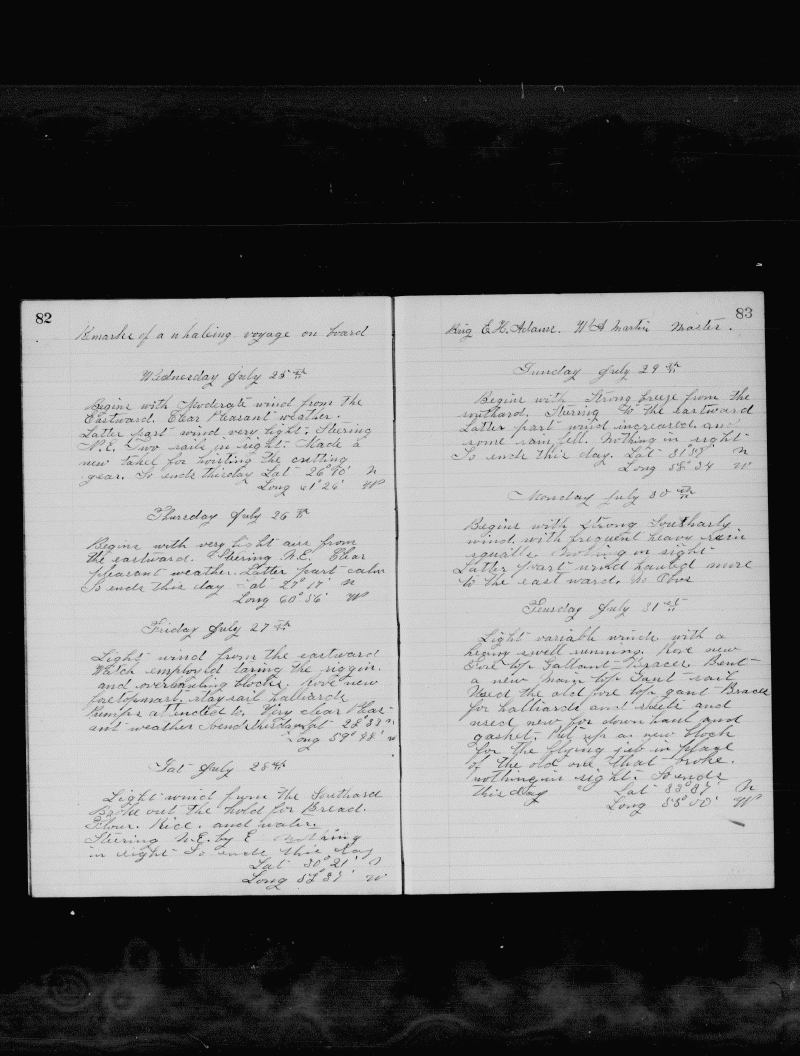 82
Remarks of a whaleing voyage on board
Wednesday July 25th
Begins with Moderate wind from the
Eastward. Clear Pleasant weather.
Latter part wind very light. Steering
N.E. Two sails in sight. Made a
new takel for hoisting the cutting
gear. So ends this day Lat 26° 40' N
Long 61° 26' W
Thursday July 26th
Begins with very light airs from
the eastward. Steering N.E. Clear
pleasant weather. Latter part calm
So ends this day Lat 27° 17' N
Long 60° 56' W
Friday July 27th
Light wind from the eastward
Watch employed taring the riggin
and overhauling blocks. Rove new
foretopmast staysail halliards
Pumps attended to. Very clear Pleas-
ant weather So ends this day Lat 28° 33' N
Long 59° 44' W
Sat July 28th
Light wind from the Southard
Broke out the hold for Bread.
Flour. Rice. and water.
Steering N.E. by E Nothing
in sight So ends this day
Lat 30° 21' N
Long 58° 37' W
83
Brig E.H. Adams. W A Martin Master.
Sunday July 29th
Begins with Strong breeze from the
southard. Stering to the eastward
Latter part wind increased and
some rain fell. Nothing in sight
So ends this day. Lat 31° 57' N
Long 56° 34' W
Monday July 30th
Begins with strong Southarly
wind, with frequent heavy rain
squalls. Nothing in sight
Latter part wind hauled more
to the east ward. No Obs
Teusday July 31st
Light variable winds with a
heavy swell running. Rove new
Fore top Gallant Braces. Bent
a new main top Gant sail
Used the old fore top gant Braces
for halliards and sheets and
used new for down haul and
gasket. Put up a new block
for the flying jib in place
of the old one that broke.
nothing in sight. So ends
this day Lat 33° 37' N
Long 55° 00' W